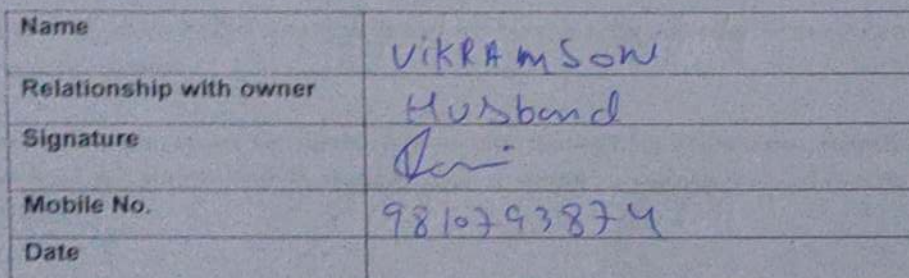 Name ViKRAmSon
Relationship with owner Husband
Signature
Mobile No. 9810793874
Date